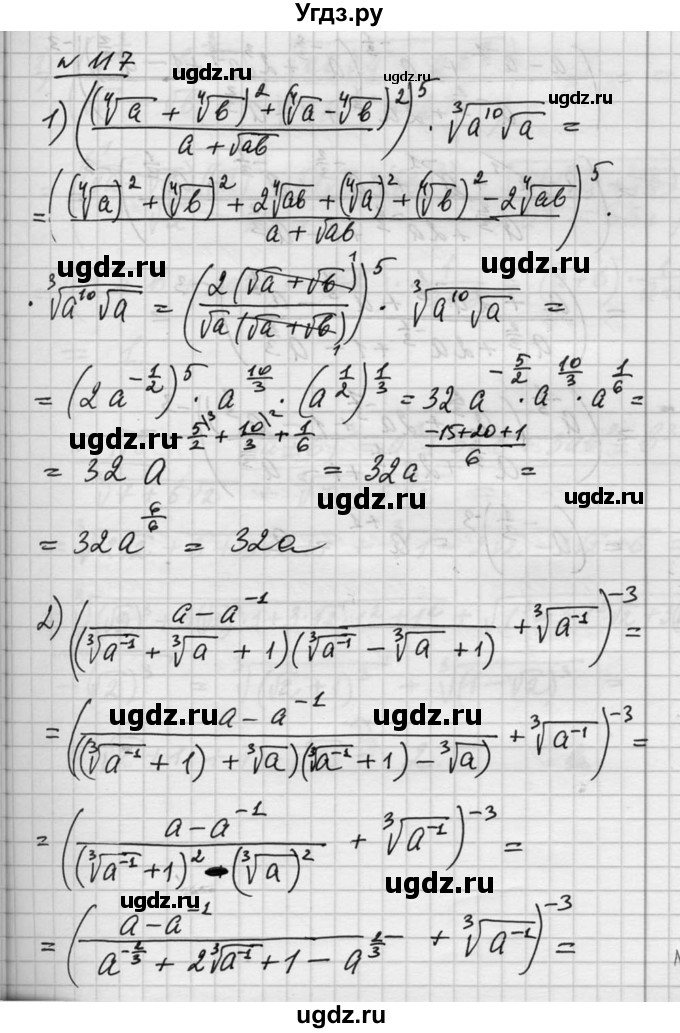 Угдз.ру
№ 117
ugdz.ru ugdz.ru
1) (((⁴√a + ⁴√b)² + (⁴√a - ⁴√b)²) / (a + √ab))⁵ · ³√(a¹⁰√a) =
= (((⁴√a)² + (⁴√b)² + 2⁴√ab + (⁴√a)² + (⁴√b)² - 2⁴√ab) / (a + √ab))⁵ ·
ugdz.ru ugdz.ru
· ³√(a¹⁰√a) = (2(√a + √b)¹ / √a(√a + √b)₁)⁵ · ³√(a¹⁰√a) =
= (2a^(-1/2))⁵ · a^(10/3) · (a^(1/2))^(1/3) = 32a^(-5/2) · a^(10/3) · a^(1/6) =
ugdz.ru ugdz.ru
= 32a^(-5/2\3 + 10/3\2 + 1/6) = 32a^((-15+20+1)/6) =
= 32a^(6/6) = 32a
2) ((a - a⁻¹) / ((³√a⁻¹ + ³√a + 1)(³√a⁻¹ - ³√a + 1)) + ³√a⁻¹)⁻³ =
ugdz.ru ugdz.ru
= ((a - a⁻¹) / (((³√a⁻¹ + 1) + ³√a)(³√a⁻¹ + 1) - ³√a) + ³√a⁻¹)⁻³ =
= ((a - a⁻¹) / ((³√a⁻¹ + 1)² - (³√a)²) + ³√a⁻¹)⁻³ =
ugdz.ru ugdz.ru
= ((a - a⁻¹) / (a^(-2/3) + 2³√a⁻¹ + 1 - a^(2/3)) + ³√a⁻¹)⁻³ =
ugdz.ru ugdz.ru
ugdz.ru